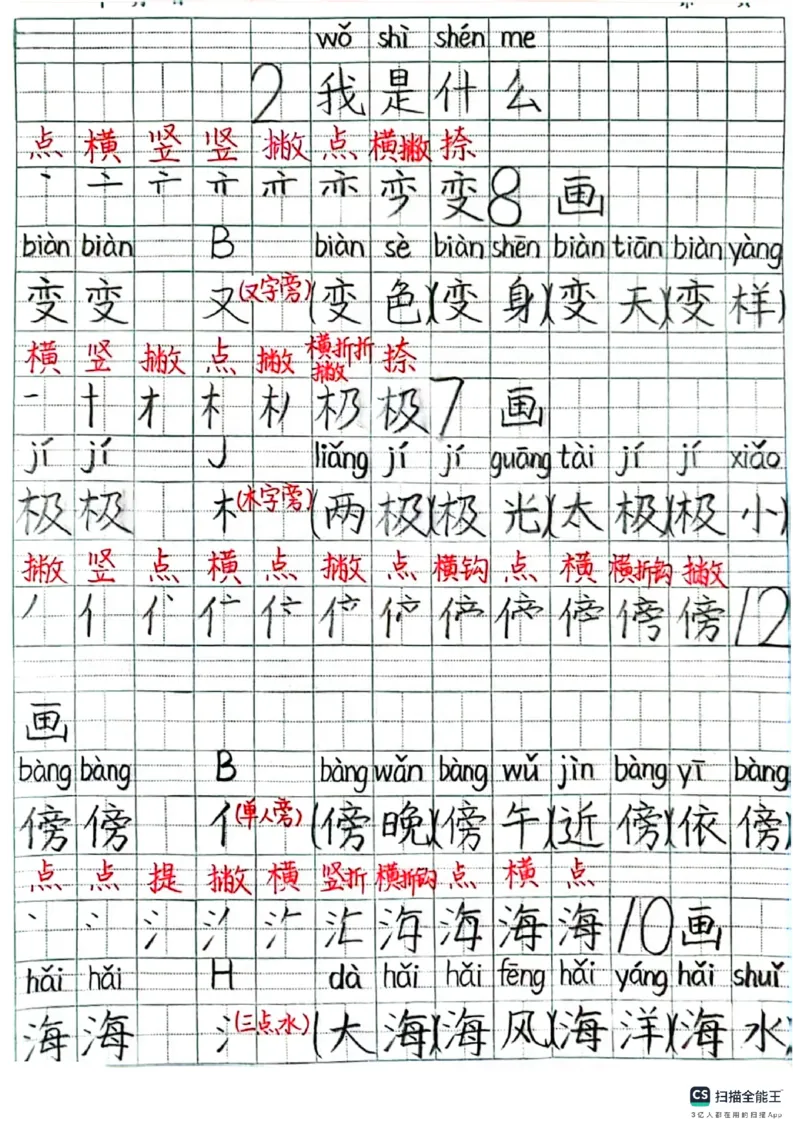 wǒ shì shén me
2 我是什么
点 横 竖 竖 撇 点 横撇 捺
变 变 8 画
biàn biàn B biàn sè biàn shēn biàn tiān biàn yàng
变 变 又(又字旁)(变色)(变身)(变天)(变样)
横 竖 撇 点 撇 横折折撇 捺
一 十 才 木 极 极 7 画
jí jí J liǎng jí jí guāng tài jí jí xiǎo
极 极 木(木字旁)(两极)(极光)(太极)(极小)
撇 竖 点 横 点 撇 点 横钩 点 横 横折钩 撇
丿 亻 傍 傍 12
画
bàng bàng B bàng wǎn bàng wǔ jìn bàng yī bàng
傍 傍 亻(单人旁)(傍晚)(傍午)(近傍)(依傍)
点 点 提 撇 横 竖折 横折钩 点 横 点
丶 冫 氵 汇 海 海 海 海 10 画
hǎi hǎi H dà hǎi hǎi fēng hǎi yáng hǎi shuǐ
海 海 氵(三点水)(大海)(海风)(海洋)(海水)
CS 扫描全能王
3亿人都在用的扫描App